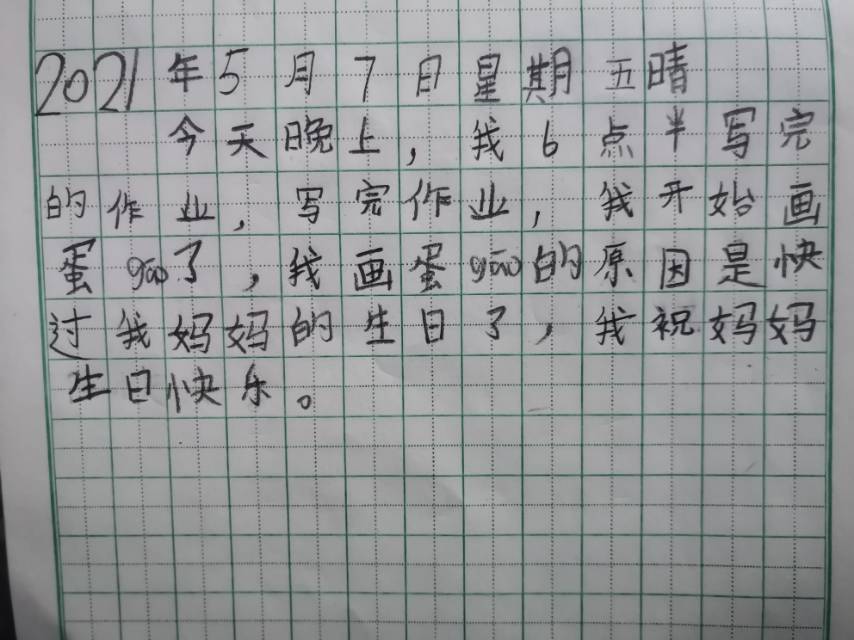 2021年5月7日星期五晴
今天晚上，我6点半写完
的作业，写完作业，我开始画
蛋gāo了，我画蛋gāo的原因是快
过我妈妈的生日了，我祝妈妈
生日快乐。